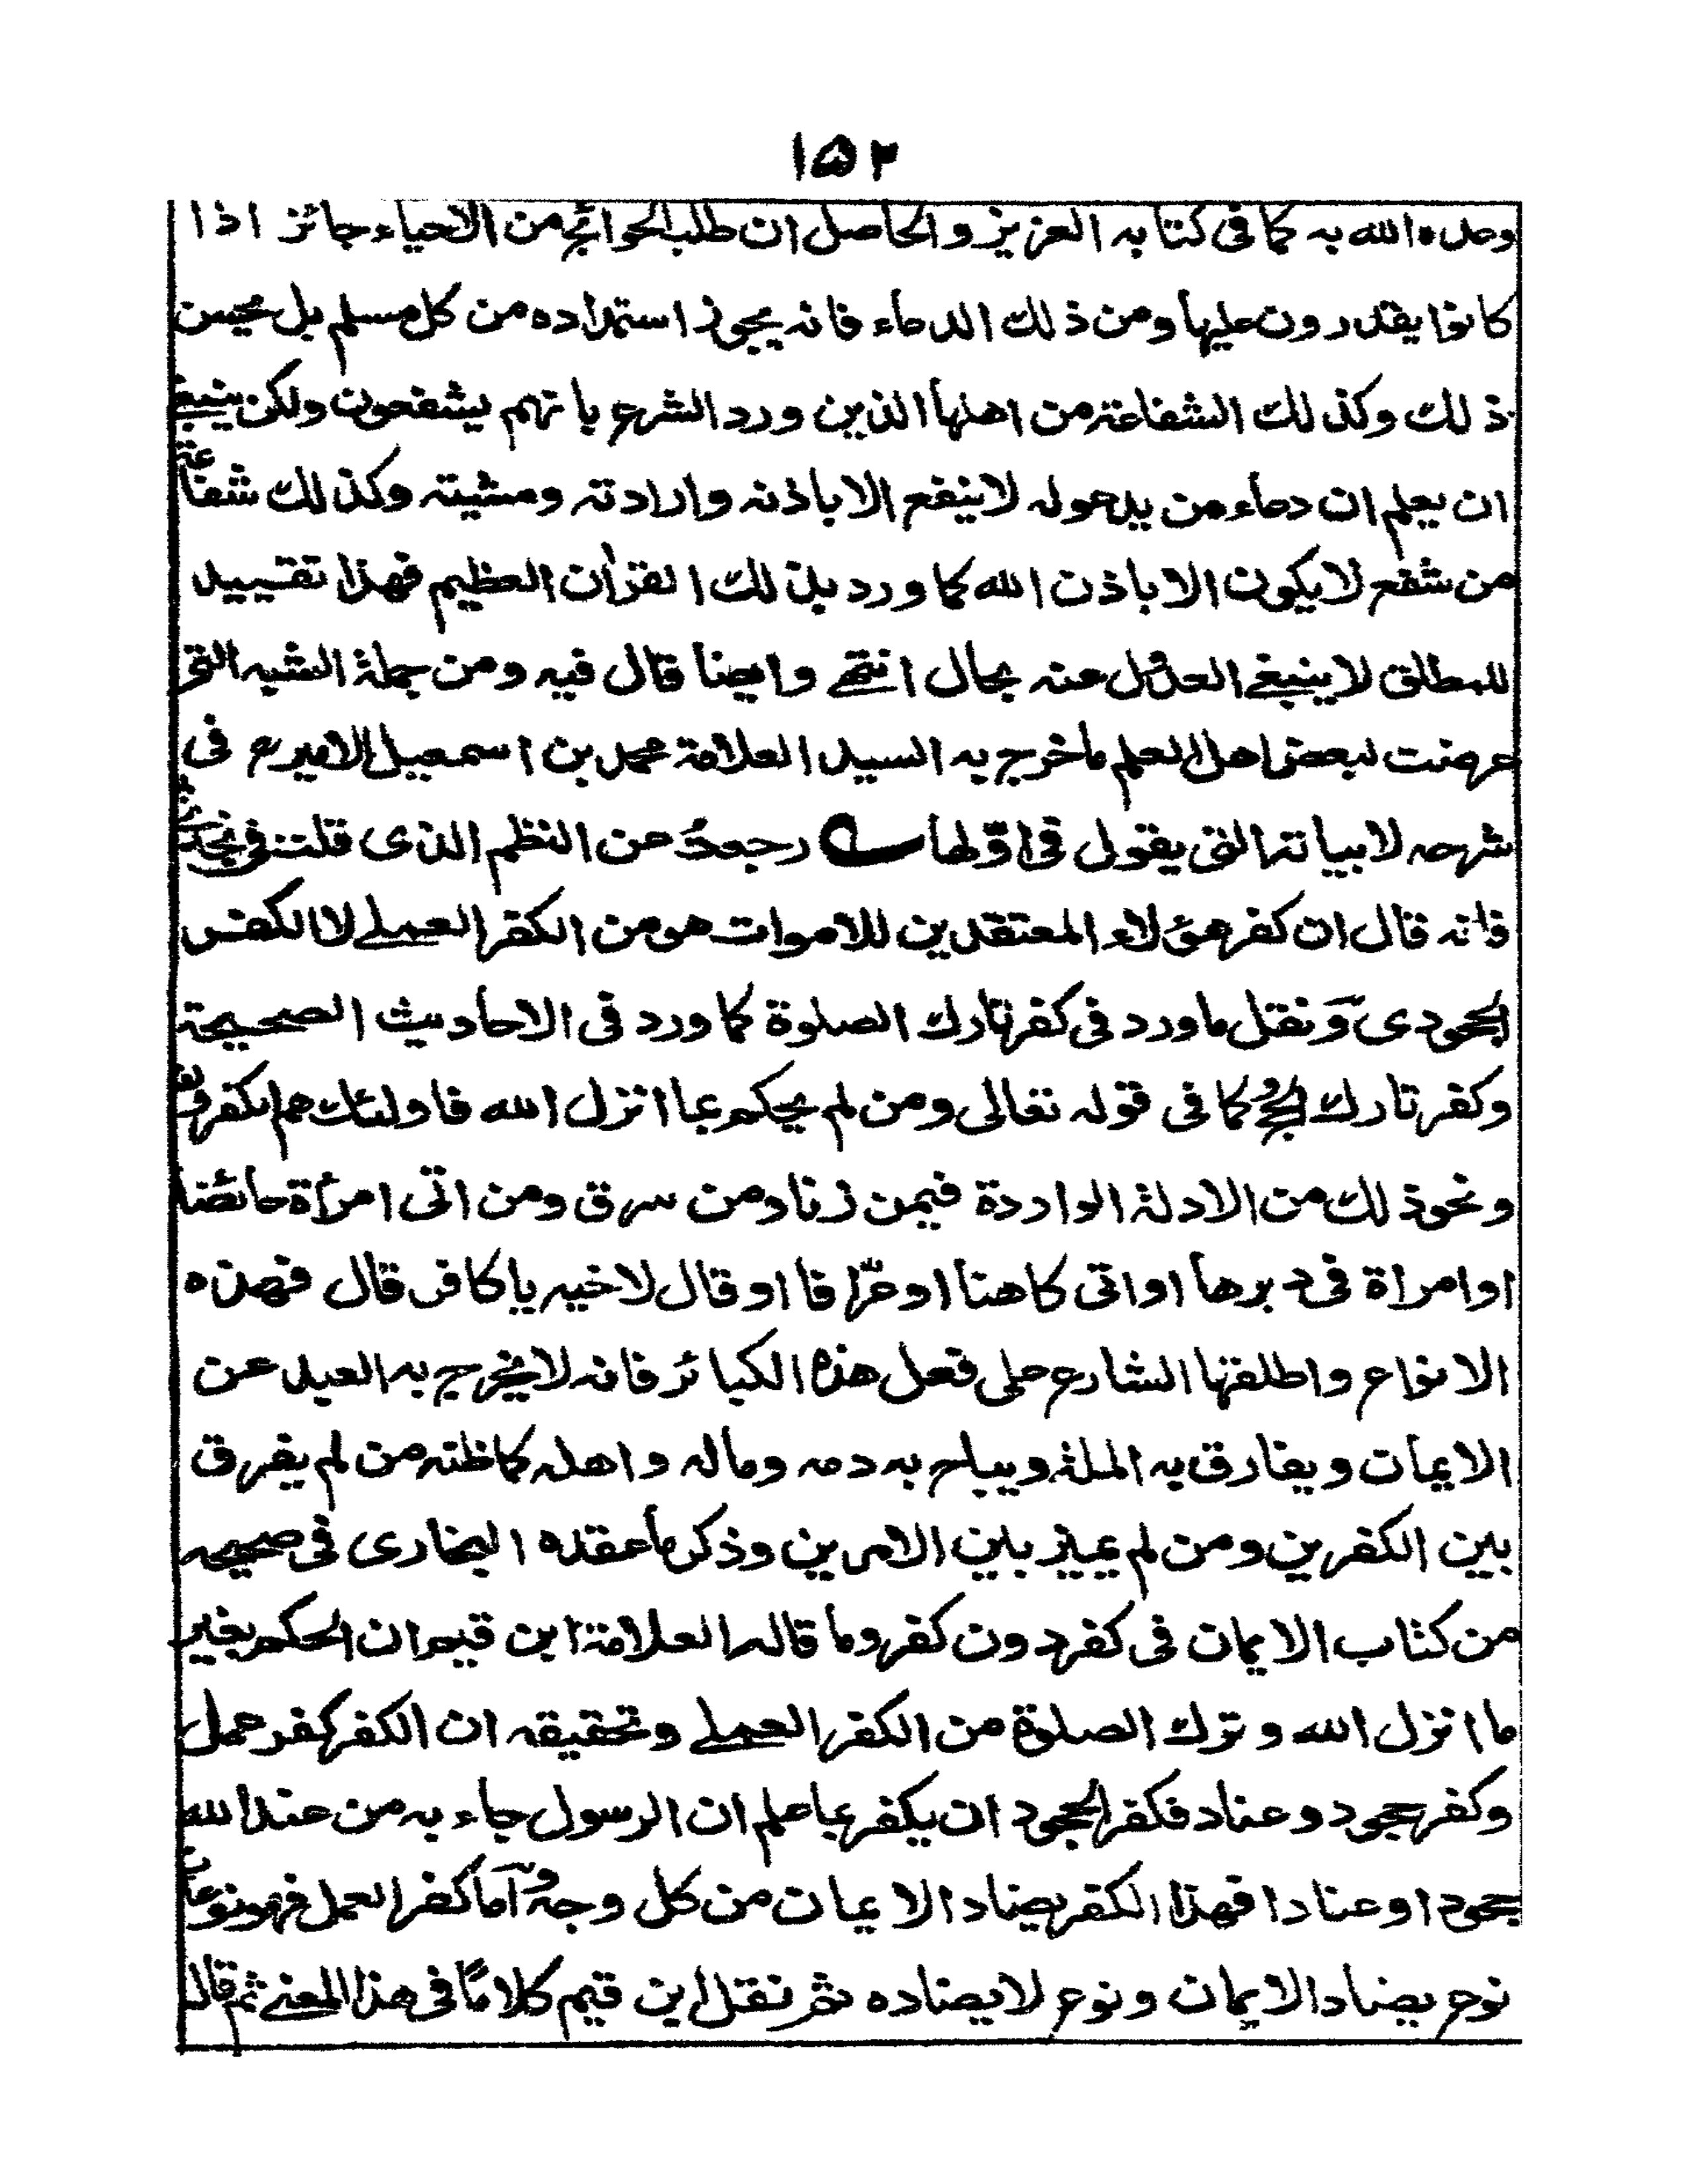 ١٥٢
وعده الله به كما فى كتابه العزيز والحاصل ان طلب الحوائج من الاحياء جائز اذا
كانوا يقدرون عليها ومن ذلك الدعاء فانه يجوز استمداده من كل مسلم بل يحسن
ذلك وكذلك الشفاعة من اهلها الذين ورد الشرع بانهم يشفعون ولكن ينبغى
ان يعلم ان دعاء من يدعو له لا ينفع الا باذنه وارادته ومشيته وكذلك شفاعة
من شفع لا يكون الا باذن الله كما ورد بذلك القرأن العظيم فهذا تقييد
للمطلق لا ينبغى العدول عنه بحال انتهى وايضا قال فيه ومن جملة الشبه التى
عرضت لبعض اهل العلم ما خرج به السيد العلامة محمد بن اسمعيل الامير رح فى
شرحه لابياته التى يقولى فى اوّلها رجعتُ عن النظم الذى قلت فى نجدى
فانه قال ان كفر هؤلاء المعتقدين للاموات هو من الكفر العملى لا الكفر
الجحودى وَنقل ما ورد فى كفر تارك الصلوة كما ورد فى الاحاديث الصحيحة
وكفر تارك الحج كما فى قوله تعالى ومن لم يحكم بما انزل الله فاولئك هم الكفرون
ونحو ذلك من الادلة الواردة فيمن زنا ومن سرق ومن اتى امرأة حائضا
او امراة فى دبرها او اتى كاهنا او عرّافا او قال لاخيه يا كافر قال فهذه
الانواع واطلقها الشارع على فعل هذه الكبائر فانه لا يخرج به العبد عن
الايمان ويفارق به الملة ويباح به دمه وماله واهله كما ظنه من لم يفرق
بين الكفرين ومن لم يميز بين الامرين وذكر ما عقده البخارى فى صحيحه
من كتاب الايمان فى كفر دون كفر وما قاله العلامة ابن قيم ان الحكم بغير
ما انزل الله وترك الصلوة من الكفر العملى وتحقيقه ان الكفر كفر عمل
وكفر جحود وعناد فكفر الجحود ان يكفر بما علم ان الرسول جاء به من عند الله
جحودا وعنادا فهذا الكفر يضاد الايمان من كل وجه وآما كفر العمل فهو نوعان
نوع يضاد الايمان ونوع لا يضاده ثم نقل ابن قيم كلامًا فى هذا المعنى ثم قال